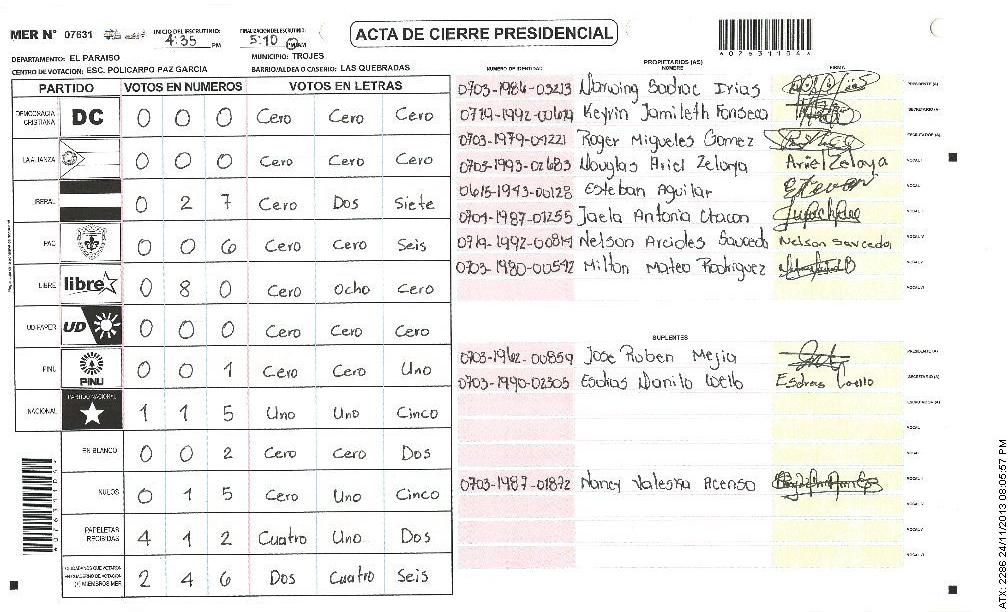 MER N° 07631
INICIO DEL ESCRUTINIO: 4:35 PM
FINALIZACION DEL ESCRUTINIO: 5:10 PM
ACTA DE CIERRE PRESIDENCIAL
DEPARTAMENTO: EL PARAISO
MUNICIPIO: TROJES
CENTRO DE VOTACION: ESC. POLICARPO PAZ GARCIA
BARRIO/ALDEA O CASERIO: LAS QUEBRADAS
PARTIDO VOTOS EN NUMEROS VOTOS EN LETRAS
DEMOCRACIA CRISTIANA DC 0 0 0 Cero Cero Cero
LA ALIANZA 0 0 0 Cero Cero Cero
LIBERAL 0 2 7 Cero Dos Siete
PAC 0 0 6 Cero Cero Seis
LIBRE libre 0 8 0 Cero Ocho Cero
UD FAPER UD 0 0 0 Cero Cero Cero
PINU PINU 0 0 1 Cero Cero Uno
NACIONAL PARTIDO NACIONAL 1 1 5 Uno Uno Cinco
EN BLANCO 0 0 2 Cero Cero Dos
NULOS 0 1 5 Cero Uno Cinco
PAPELETAS RECIBIDAS 4 1 2 Cuatro Uno Dos
CIUDADANOS QUE VOTARON EN CUADERNO DE VOTACION (+) MIEMBROS MER 2 4 6 Dos Cuatro Seis
PROPIETARIOS (AS)
NUMERO DE IDENTIDAD NOMBRE FIRMA
Irias PRESIDENTE (A)
Keyrin Jamileth Fonseca SECRETARIO (A)
0703-1979-04221 Roger Migueles Gomez ESCRUTADOR (A)
0703-1993-02683 Douglas Ariel Zelaya Ariel Zelaya VOCAL I
0615-1943-00128 Esteban Aguilar
0704-1987-01255 Jaela Antonia Chacon
Nelson Saucedo Nelson Saucedo
0703-1980-00542 Milton Mateo Rodriguez
SUPLENTES
Jose Ruben Mejia PRESIDENTE (A)
0703-1990-02305 Danilo SECRETARIO (A)
ESCRUTADOR (A)
0703-1987-01872 Nancy Valeska
ATX: 2286 24/11/2013 08:05:57 PM